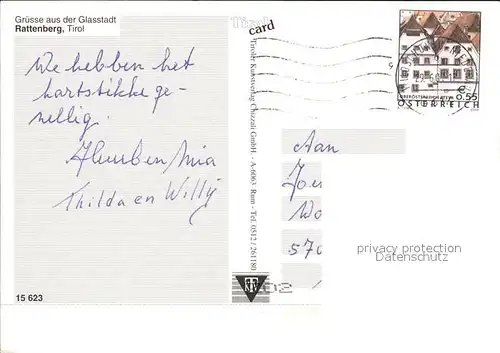 Grüsse aus der Glasstadt
Rattenberg, Tirol
We hebben het
hartstikke ge-
zellig.
Mia
Thilda en Willy
15 623
Tirol
card
Tiroler Kunstverlag Chizzali GmbH. - A-6063 Rum - Tel. 0512 / 261180
€ 0,55
ÖSTERREICH
Aan
privacy protection
Datenschutz